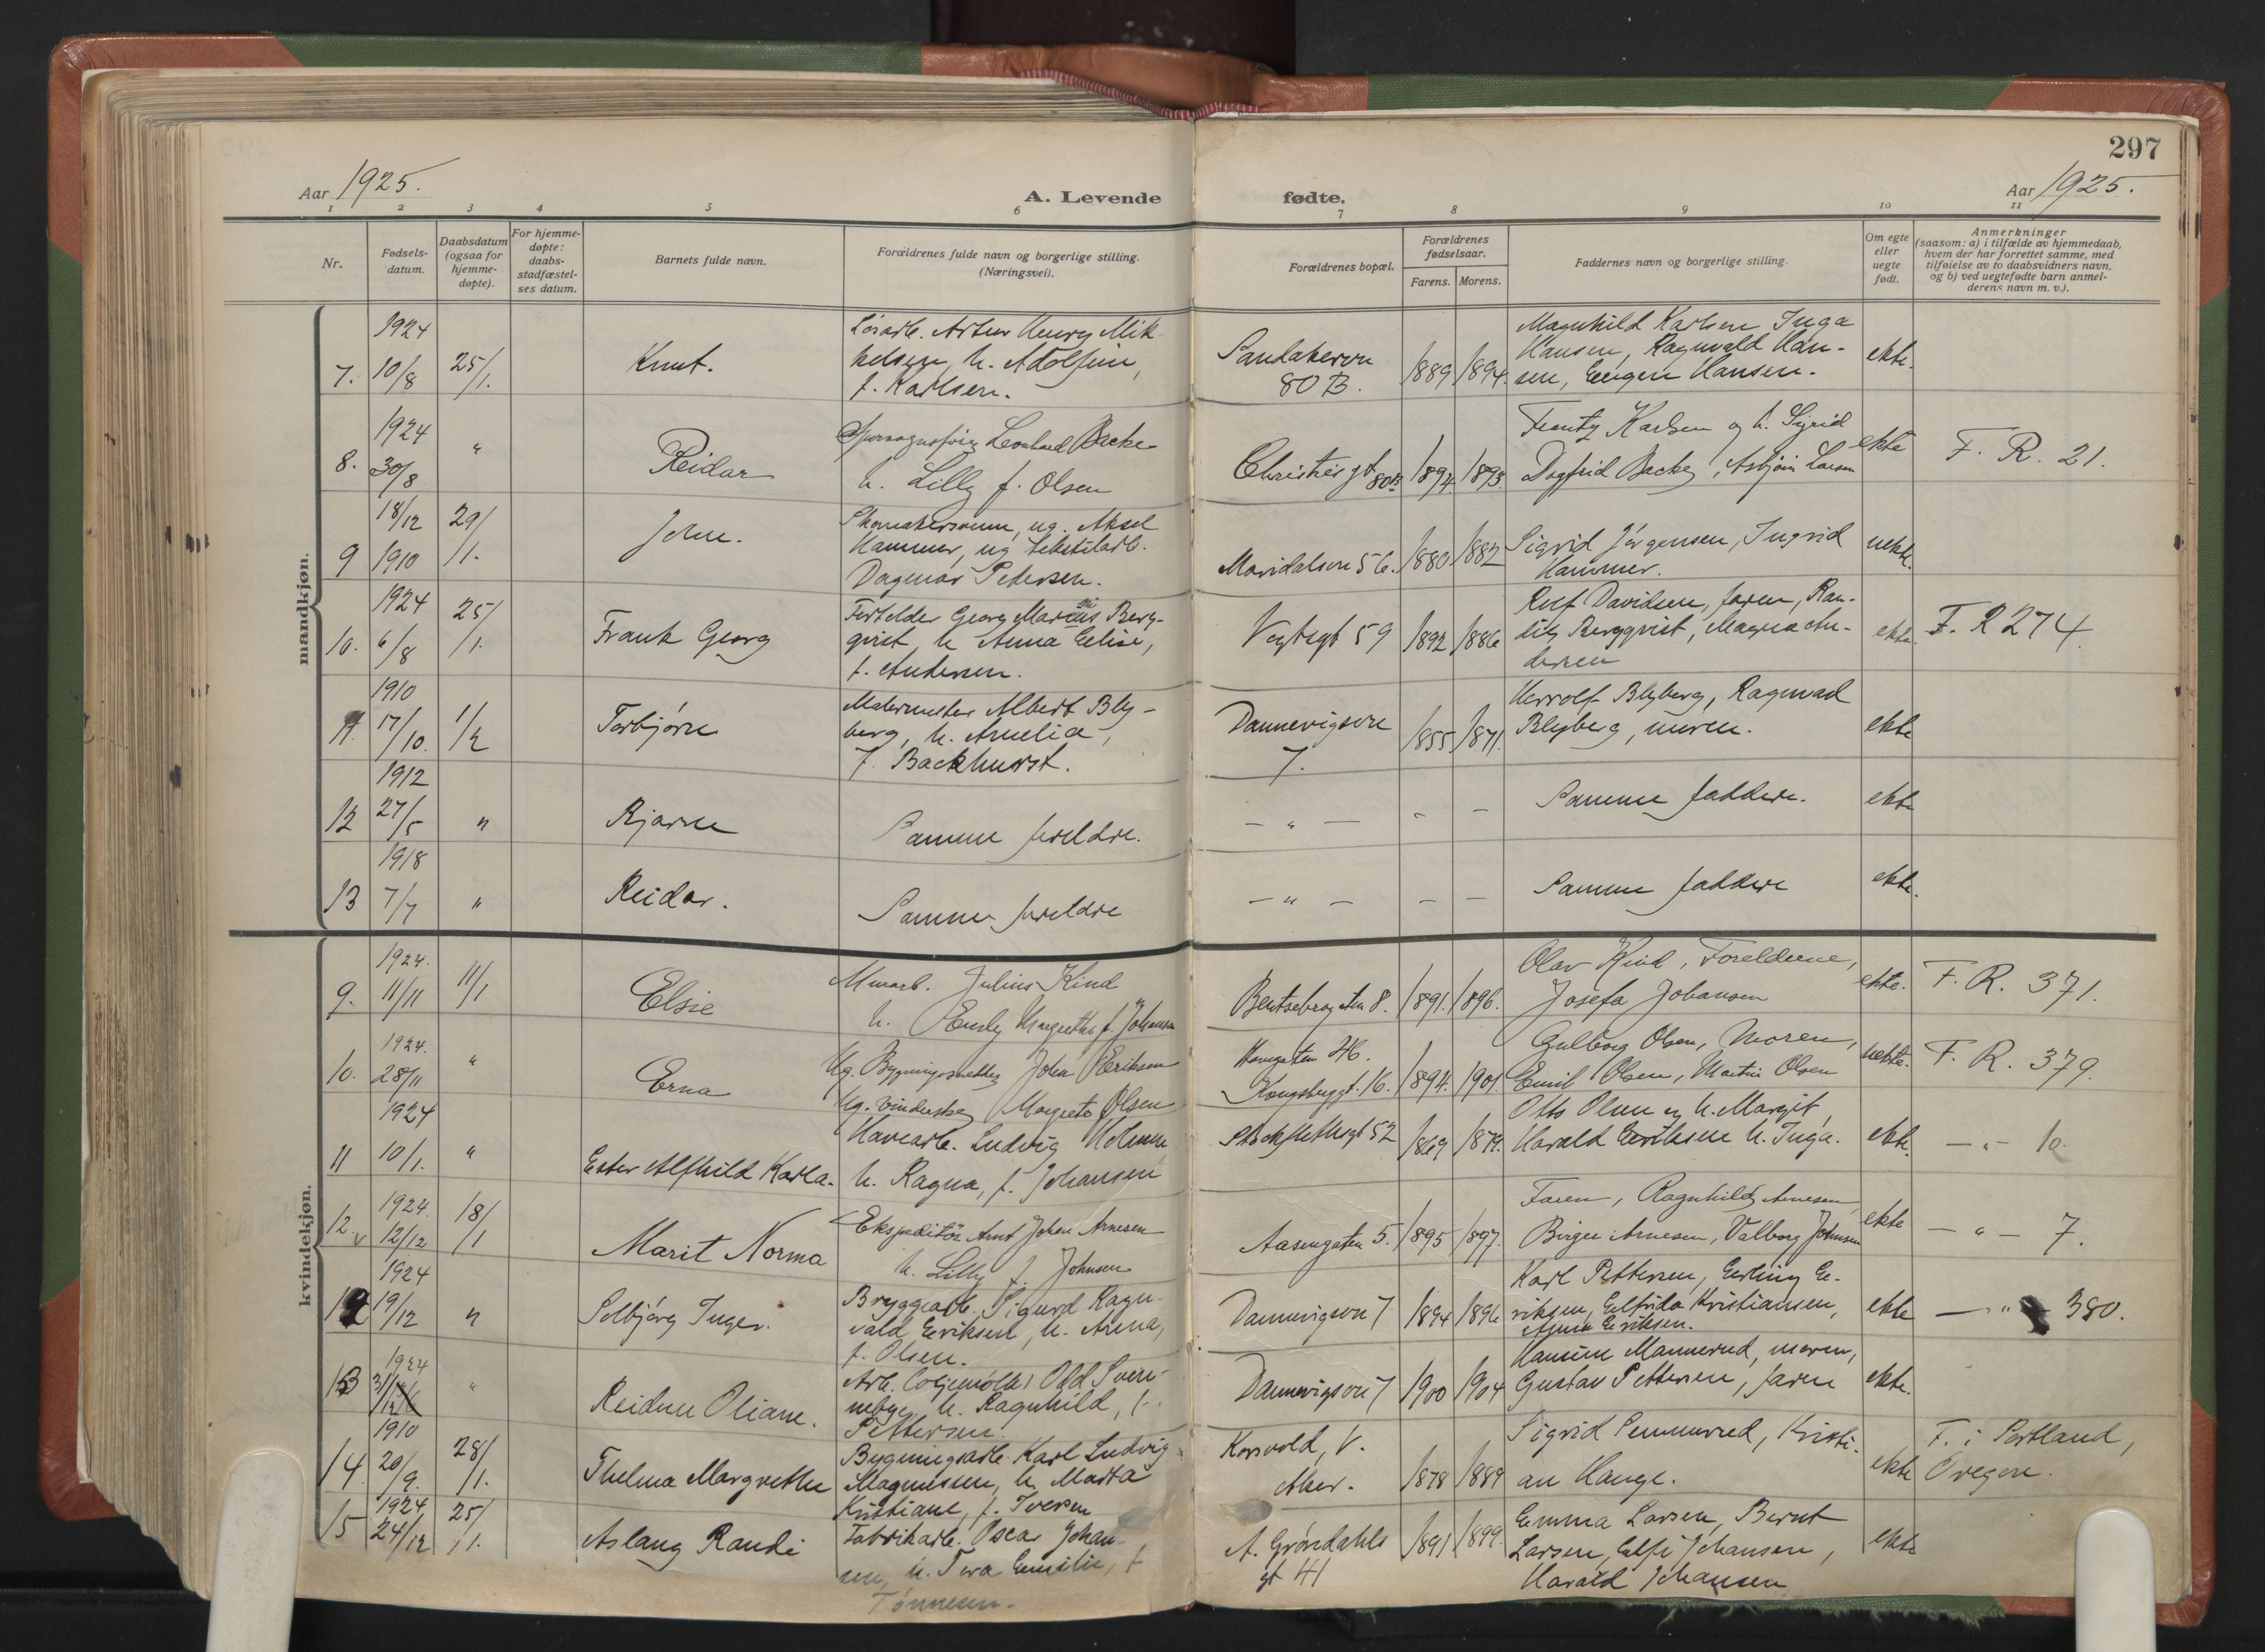 297
Aar 1925.
A. Levende fødte.
Aar 1925.
1 2 3 4 5 6 7 8 9 10 11
Nr.
Fødsels-
datum.
Daabsdatum
(ogsaa for
hjemme-
døpte).
For hjemme-
døpte:
daabs-
stadfæstel-
ses datum.
Barnets fulde navn.
Forældrenes fulde navn og borgerlige stilling.
(Næringsvei).
Forældrenes bopæl.
Forældrenes
fødselsaar.
Farens. Morens.
Faddernes navn og borgerlige stilling.
Om egte
eller
uegte
født.
Anmerkninger
(saasom: a) i tilfælde av hjemmedaab,
hvem der har forrettet samme, med
tilføielse av to daabsvidners navn,
og b) ved uegtefødte barn anmel-
derens navn m. v.).
mandkjøn.
7. 1924 10/8 25/1. Knut.
Løsarb. Artur Henry Mik-
kelsen, h. Adolfine,
f. Karlsen.
Sandakervn
80 B.
1889 1894.
Magnhild Karlsen Inga
Hansen, Ragnvald Han-
sen, Eugen Hansen.
ekte.
8. 1924 30/8 " Reidar
Leonhard Backe
h. Lilly f. Olsen
Christies gt 80B
1894. 1893.
Frantz Karlsen og h. Sigrid
Dagfrid Backe, Asbjørn Larsen
ekte
F. R. 21.
9 18/12 1910 29/1. John.
Skomakersvenn, ug. Aksel
Hammer, ug tekstilarb.
Dagmar Petersen.
Maridalsvn 56.
1880 1882
Sigrid Jørgensen, Ingrid
Hammer.
uekte.
10. 1924 6/8 25/1. Frank Georg
Georg Marcus Berg-
qvist h Anna Elise,
f. Andersen.
Vogtsgt 59
1892 1886
Rolf Davidsen, faren, Ran-
di Bergqvist, Magna An-
dersen
ekte.
F. R 274.
11. 1910 17/10. 1/2 Torbjørn
Malermester Albert Bly-
berg, h. Amelia,
f. Backhurst.
Dannevigsvn
7.
1855 1871.
Herrolf Blyberg, Ragnvad
Blyberg, moren.
ekte
12 1912 27/5 " Bjarne
Samme foreldre.
— " — - -
Samme faddere.
ekte
13 1918 7/7 " Reidar.
Samme foreldre
— " — - -
Samme faddere
ekte.
kvindekjøn.
9. 1924. 11/11 11/1 Elsie
Murarb. Julius Kind
h. Emly Margrethe f. Johansen
Bentsebrogaten 8.
1891. 1896.
Olav Kind, Foreldrene,
Josefa Johansen
ekte.
F. R. 371.
10. 1924. 28/11 " Erna
Ug. John Eriksen
Ug. Margrete Olsen
Kongsbergt. 16.
1894. 1901.
Gulborg Olsen, Moren,
Emil Olsen, Martin Olsen
uekte.
F. R. 379.
11 1924 10/1. " Ester Alfhild Karla.
Havearb. Ludvig Holmen
h. Ragna, f. Johansen
Stockflethsgt 52
1869 1879.
Otto Olsen og h. Margit,
Harald Eriksen h. Inga.
ekte.
— " — 10
12. 1924 12/12 18/1 Marit Norma
Ekspeditør Arnt Johan Arnesen
h. Lilly f. Johnsen
Aasengaten 5.
1895 1897.
Faren, Ragnhild Arnesen,
Birger Arnesen, Valborg Johnsen
ekte
— " — 7.
12 1924 19/12 " Solbjørg Inger.
Bryggearb. Sigurd Ragn-
vald Eriksen, h. Arena,
f. Olsen.
Dannevigsvn 7
1894 1896
Karl Pettersen, Erling E-
riksen, Elfrida Kristiansen,
Anna Eriksen.
ekte
— " — 380.
13 1924 31/12 " Reidun Oliane.
Arb. Odd Sven-
nebye h. Ragnhild, f.
Pettersen.
Dannevigsvn 7
1900 1904
Hansine Mannerud, moren,
Gustav Pettersen, faren
ekte.
14. 1910 20/9. 28/1. Thelma Margrethe
Bygningsarb. Karl Ludvig
Magnussen, h. Marta
Kristiane, f. Iversen
Korsvold, V.
Aker.
1878 1889
Sigrid Semmerud, Kristi-
an Hauge.
ekte
F. i Portland,
Oregon.
15 1924 24/12 25/1. Aslaug Randi
Fabrikarb. Oscar Johan-
sen, h. Tora Emilie, f
Tønnesen.
A. Grøndahls
gt 41
1891 1899.
Emma Larsen, Bernt
Larsen, Elfi Johansen,
Harald Johansen
ekte